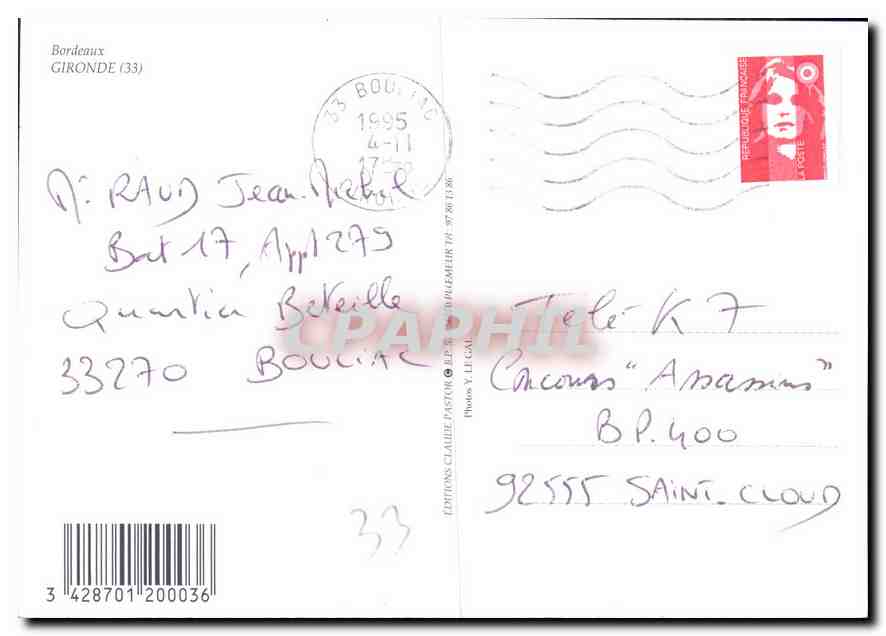 Bordeaux
GIRONDE (33)
33 BOULIAC
1995
4-11
RÉPUBLIQUE FRANÇAISE
LA POSTE
Mr. RAUD Jean-Michel
Bat 17, Appt 279
Quartier Bateille
33270 BOULIAC
33
3 428701 200036
ÉDITIONS CLAUDE PASTOR B.P. PLEMEUR Tél. 97 86 13 86
Photos Y. LE GAL
CPAPHIL
Télé K 7
Concours "Assassins"
BP. 400
92555 SAINT-CLOUD